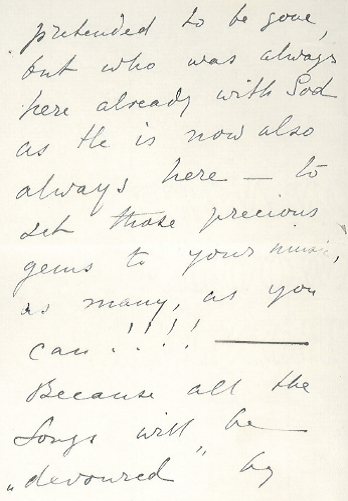 pretended to be gone,
but who was always
here already with God
as He is now also
always here — to
set those precious
gems to your music,
as many, as you
can!!!!! —
Because all the
Songs will, be
„devoured" by